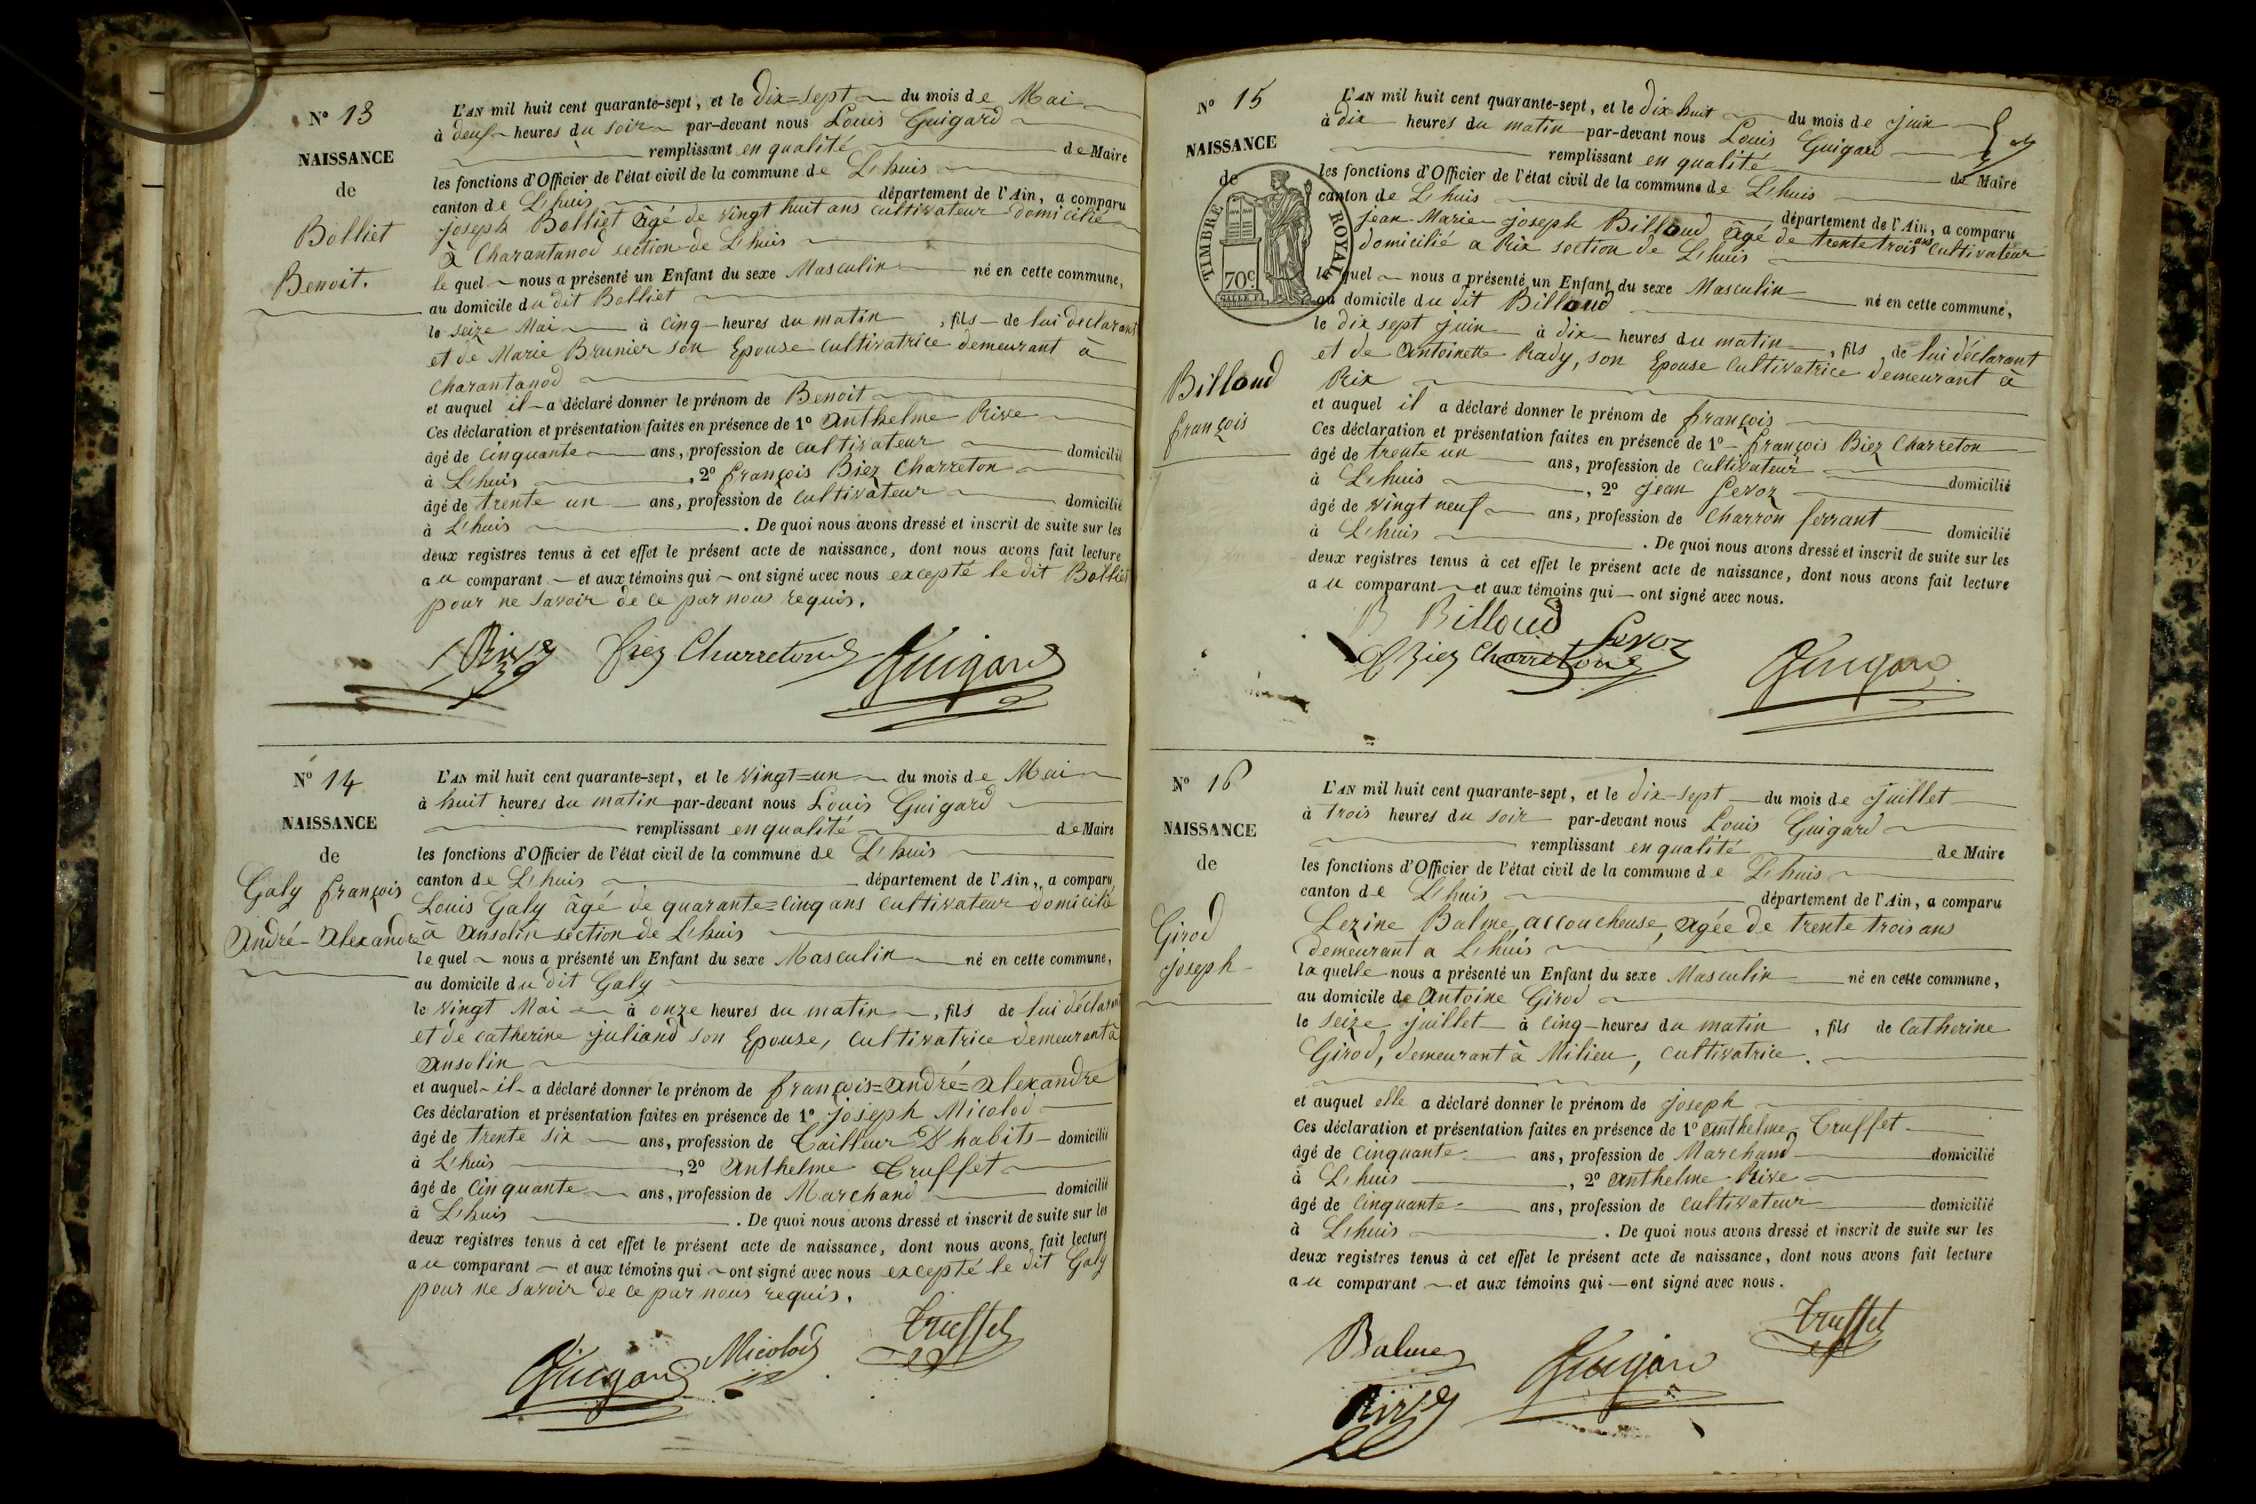 N° 13
NAISSANCE
de
Bolliet
Benoit.
L'AN mil huit cent quarante-sept, et le dix=sept du mois de Mai
à deux heures du soir par-devant nous Louis Guigard
remplissant en qualité de Maire
les fonctions d'Officier de l'état civil de la commune de L'huis
canton de L'huis département de l'Ain, a comparu
joseph Bolliet âgé de vingt huit ans cultivateur domicilié
à Charantanod section de L'huis
lequel nous a présenté un Enfant du sexe Masculin né en cette commune,
au domicile du dit Bolliet
le seize Mai à cinq heures du matin, fils de lui déclarant
et de Marie Brunier son Epouse cultivatrice demeurant à
Charantanod
et auquel il a déclaré donner le prénom de Benoit
Ces déclaration et présentation faites en présence de 1° Anthelme Rive
âgé de cinquante ans, profession de cultivateur domicilié
à L'huis, 2° françois Biez Charreton
âgé de trente un ans, profession de cultivateur domicilié
à L'huis. De quoi nous avons dressé et inscrit de suite sur les
deux registres tenus à cet effet le présent acte de naissance, dont nous avons fait lecture
au comparant et aux témoins qui ont signé avec nous excepté le dit Bolliet
pour ne savoir de ce par nous requis.
Rive Biez Charreton Guigard
N° 14
NAISSANCE
de
Galy françois
André-Alexandre
L'AN mil huit cent quarante-sept, et le vingt=un du mois de Mai
à huit heures du matin par-devant nous Louis Guigard
remplissant en qualité de Maire
les fonctions d'Officier de l'état civil de la commune de L'huis
canton de L'huis département de l'Ain, a comparu
Louis Galy âgé de quarante=cinq ans cultivateur domicilié
a Ansolin section de L'huis
lequel nous a présenté un Enfant du sexe Masculin né en cette commune,
au domicile du dit Galy
le vingt Mai à onze heures du matin, fils de lui déclarant
et de catherine juliand son Epouse, cultivatrice demeurant à
Ansolin
et auquel il a déclaré donner le prénom de françois=André=Alexandre
Ces déclaration et présentation faites en présence de 1° joseph Micolod
âgé de trente six ans, profession de Tailleur D'habits domicilié
à L'huis, 2° Anthelme Truffet
âgé de cinquante ans, profession de Marchand domicilié
à L'huis. De quoi nous avons dressé et inscrit de suite sur les
deux registres tenus à cet effet le présent acte de naissance, dont nous avons fait lecture
au comparant et aux témoins qui ont signé avec nous excepté le dit Galy
pour ne savoir de ce par nous requis.
Guigard Micolod Truffet
N° 15
NAISSANCE
de
TIMBRE ROYAL
70c
Billoud
françois
L'AN mil huit cent quarante-sept, et le dix huit du mois de juin
à dix heures du matin par-devant nous Louis Guigard
remplissant en qualité de Maire
les fonctions d'Officier de l'état civil de la commune de L'huis
canton de L'huis département de l'Ain, a comparu
jean-Marie joseph Billoud âgé de trente trois ans cultivateur
domicilié a Rix section de L'huis
lequel nous a présenté un Enfant du sexe Masculin né en cette commune,
au domicile du dit Billoud
le dix sept juin à dix heures du matin, fils de lui déclarant
et de Antoinette Rady, son Epouse cultivatrice demeurant à
Rix
et auquel il a déclaré donner le prénom de françois
Ces déclaration et présentation faites en présence de 1° françois Biez Charreton
âgé de trente un ans, profession de cultivateur domicilié
à L'huis, 2° jean Pevoz
âgé de vingt neuf ans, profession de Charron ferrant domicilié
à L'huis. De quoi nous avons dressé et inscrit de suite sur les
deux registres tenus à cet effet le présent acte de naissance, dont nous avons fait lecture
au comparant et aux témoins qui ont signé avec nous.
B Billoud Pevoz
Biez Charreton Guigard
N° 16
NAISSANCE
de
Girod
joseph
L'AN mil huit cent quarante-sept, et le dix-sept du mois de juillet
à trois heures du soir par-devant nous Louis Guigard
remplissant en qualité de Maire
les fonctions d'Officier de l'état civil de la commune de L'huis
canton de L'huis département de l'Ain, a comparu
Lezine Balme, accoucheuse, agée de trente trois ans
demeurant a L'huis
laquelle nous a présenté un Enfant du sexe Masculin né en cette commune,
au domicile de Antoine Girod
le seize juillet à cinq heures du matin, fils de Catherine
Girod, demeurant à Milieu, cultivatrice.
et auquel elle a déclaré donner le prénom de joseph
Ces déclaration et présentation faites en présence de 1° Anthelme Truffet
âgé de cinquante ans, profession de Marchand domicilié
à L'huis, 2° Anthelme Rive
âgé de cinquante ans, profession de cultivateur domicilié
à L'huis. De quoi nous avons dressé et inscrit de suite sur les
deux registres tenus à cet effet le présent acte de naissance, dont nous avons fait lecture
au comparant et aux témoins qui ont signé avec nous.
Balme Guigard Truffet
Rive